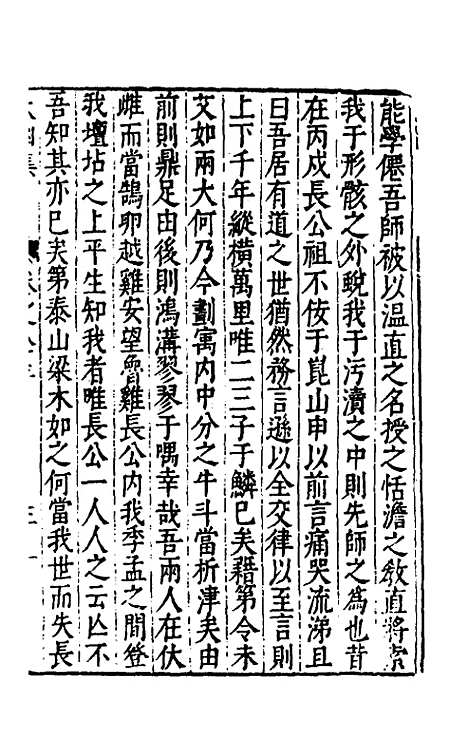 能學僊吾師被以溫直之名授之恬澹之敎直將索
我于形骸之外蛻我于污瀆之中則先師之爲也昔
在丙戌長公祖不佞于崑山申以前言痛哭流涕且
曰吾居有道之世猶然務言遜以全交律以至言則
上下千年縱橫萬里唯二三子于鱗已矣藉第令未
艾如兩大何乃今劃寓內中分之牛斗當析津矣由
前則鼎足由後則鴻溝翏翏于喁幸哉吾兩人在伏
雌而當鵠卵越雞安望魯雞長公內我季孟之間登
我壇坫之上平生知我者唯長公一人人之云亾不
吾知其亦已矣第泰山梁木如之何當我世而失長
太函集